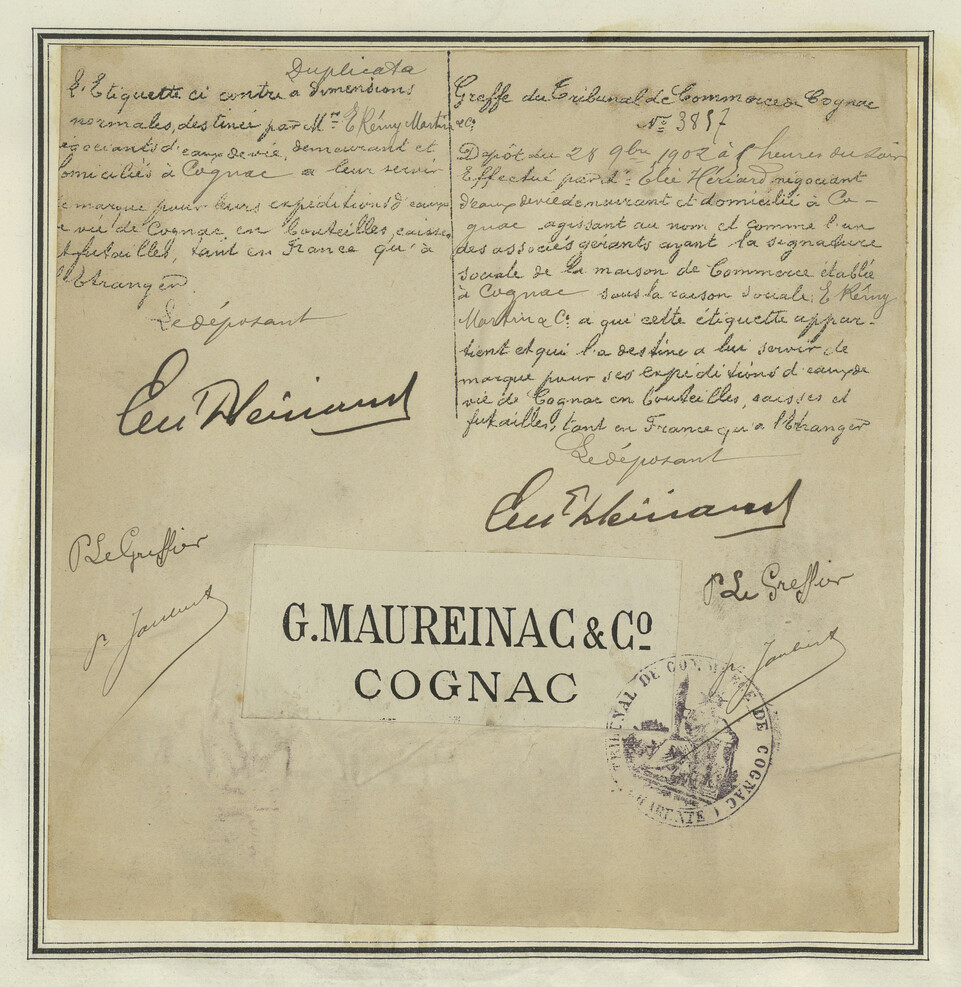 Duplicata
L'Etiquette ci contre a dimensions
normales, destinée par Mrs E Rémy Martin
& Co
négociants d'eaux de vie, demeurant et
domiciliés à Cognac a leur servir
de marque pour leurs expéditions d'eaux
de vie de Cognac en bouteilles, caisses
et futailles, tant en France qu'à
l'Etranger
Le déposant
P Le Greffier
Greffe du Tribunal de Commerce de Cognac
No 3857
Dépôt du 28 9bre 1902 à heures du soir
Effectué par Mr Elie Hériard négociant
d'eaux de vie demeurant et domicilié à Co-
gnac agissant au nom et comme l'un
des associés gérants ayant la signature
sociale de la maison de Commerce établie
à Cognac sous la raison sociale, E Rémy
Martin & Co a qui cette étiquette appar-
tient et qui l'a destine a lui servir de
marque pour ses expéditions d'eaux de
vie de Cognac en bouteilles, caisses et
futailles, tant en France qu'a l'Etranger
Le déposant
P Le Greffier
G. MAUREINAC & Co
COGNAC
TRIBUNAL DE COMMERCE DE COGNAC (CHARENTE)